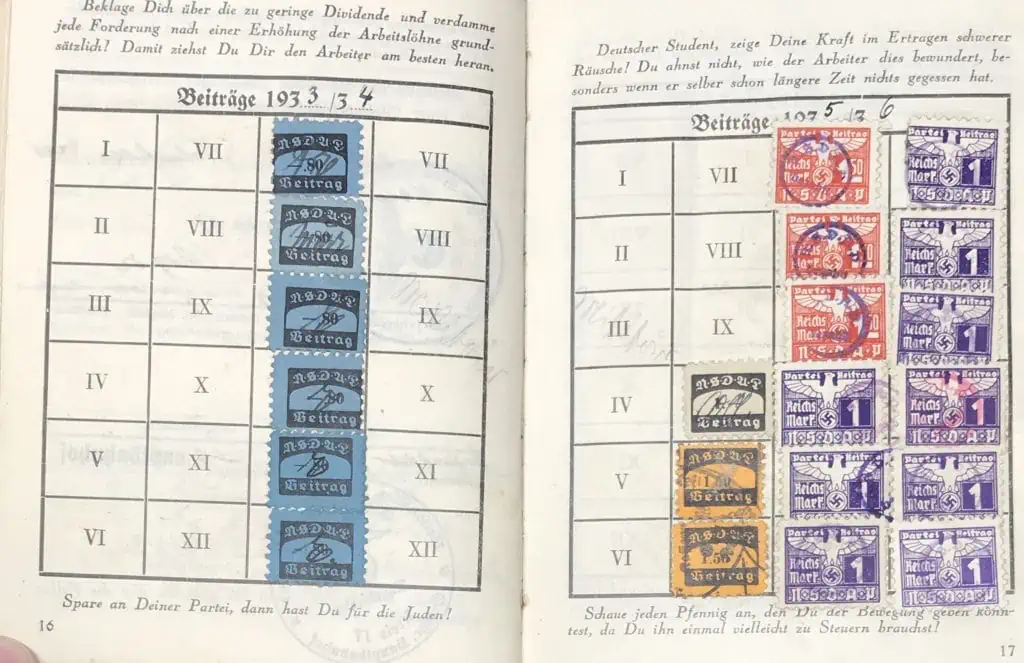 Beklage Dich über die zu geringe Dividende und verdamme
jede Forderung nach einer Erhöhung der Arbeitslöhne grund-
sätzlich! Damit ziehst Du Dir den Arbeiter am besten heran.
Beiträge 1933/34
I VII N.S.D.A.P. .80 Beitrag VII
II VIII N.S.D.A.P. 1.80 Beitrag VIII
III IX N.S.D.A.P. .80 Beitrag IX
IV X N.S.D.A.P. .80 Beitrag X
V XI N.S.D.A.P. Beitrag XI
VI XII N.S.D.A.P. Beitrag XII
Spare an Deiner Partei, dann hast Du für die Juden!
16
Deutscher Student, zeige Deine Kraft im Ertragen schwerer
Räusche! Du ahnst nicht, wie der Arbeiter dies bewundert, be-
sonders wenn er selber schon längere Zeit nichts gegessen hat.
Beiträge 1935/36
I VII Partei Beitrag Reichs Mark 1.50 N.S.D.A.P Partei Beitrag Reichs Mark 1 N.S.D.A.P
II VIII Partei Beitrag Reichs Mark Reichs Mark 1
III IX Partei Beitrag Reichs Mark N.S.D.A.P Partei Beitrag Reichs Mark 1
IV N.S.D.A.P. Beitrag Partei Beitrag Reichs Mark 1 N.S.D.A.P Partei Beitrag Reichs Mark 1 N.S.D.A.P
V N.S.D.A.P. 1.50 Beitrag Partei Beitrag Reichs Mark 1 Partei Beitrag Reichs Mark 1
VI N.S.D.A.P. 1.50 Beitrag Partei Beitrag Reichs Mark 1 N.S.D.A.P Partei Beitrag Reichs Mark 1 N.S.D.A.P
Schaue jeden Pfennig an, den Du der Bewegung geben könn-
test, da Du ihn einmal vielleicht zu Steuern brauchst!
17